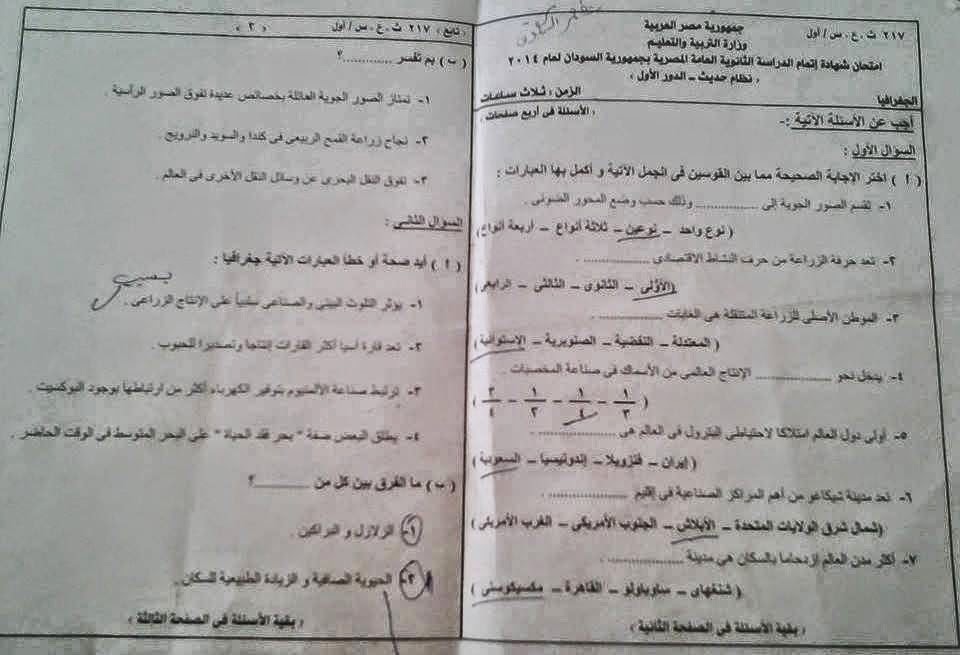 ٢١٧ ث . ع . س / أول
جمهورية مصر العربية
وزارة التربية والتعليم
امتحان شهادة إتمام الدراسة الثانوية العامة المصرية بجمهورية السودان لعام ٢٠١٤
( نظام حديث – الدور الأول )
الجغرافيا
الزمن : ثلاث ساعات
( الأسئلة فى أربع صفحات )
أجب عن الأسئلة الآتية :-
السؤال الأول :
( أ ) اختر الإجابة الصحيحة مما بين القوسين فى الجمل الآتية و أكمل بها العبارات :
١- تقسم الصور الجوية إلى ............... وذلك حسب وضع المحور الضوئى .
( نوع واحد – نوعين – ثلاثة أنواع – أربعة أنواع )
٢- تعد حرفة الزراعة من حرف النشاط الاقتصادى ............... .
( الأولى – الثانوى – الثالثى – الرابعى )
٣- الموطن الأصلى للزراعة المتنقلة هى الغابات ............... .
( المعتدلة – النفضية – الصنوبرية – الإستوائية )
٤- يدخل نحو ............... الإنتاج العالمى من الأسماك فى صناعة المخصبات .
( ١/٣ – ١/٤ – ١/٢ – ٣/٤ )
٥- أولى دول العالم امتلاكا لاحتياطى البترول فى العالم هى ............... .
( إيران – فنزويلا – إندونيسيا – السعودية )
٦- تعد مدينة شيكاغو من أهم المراكز الصناعية فى إقليم ............... .
( شمال شرق الولايات المتحدة – الأبلاش – الجنوب الأمريكى – الغرب الأمريكى )
٧- أكثر مدن العالم ازدحاما بالسكان هي مدينة ............... .
( شنغهاى – ساوباولو – القاهرة – مكسيكوسيتى )
( بقية الأسئلة فى الصفحة الثانية )
( تابع ) ٢١٧ ث . ع . س / أول
( ٢ )
( ب ) بم تفسر ............؟
١- تمتاز الصور الجوية المائلة بخصائص عديدة تفوق الصور الرأسية .
٢- نجاح زراعة القمح الربيعى فى كندا والسويد والنرويج .
٣- تفوق النقل البحرى عن وسائل النقل الأخرى فى العالم .
السؤال الثانى :
( أ ) أيد صحة أو خطأ العبارات الآتية جغرافيا :
١- يؤثر التلوث البيئى والصناعى سلبياً على الإنتاج الزراعى .
٢- تعد قارة آسيا أكثر القارات إنتاجا وتصديرا للحبوب .
٣- ترتبط صناعة الألمنيوم بتوفير الكهرباء أكثر من ارتباطها بوجود البوكسيت .
٤- يطلق البعض صفة " بحر فقد الحياة " على البحر المتوسط فى الوقت الحاضر .
( ب ) ما الفرق بين كل من ............؟
١- الزلازل و البراكين .
٢- الحيوية الصافية و الزيادة الطبيعية للسكان .
( بقية الأسئلة فى الصفحة الثالثة )